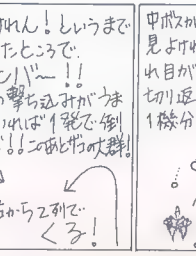 けれん！というまで
たところで、
ンバー！！
の撃ち込みがうま
いれば1発で倒
！！このあとザコの大群！
から2列で
くる！
中ボスが
見よけれ
れ目が
切り返
1機分